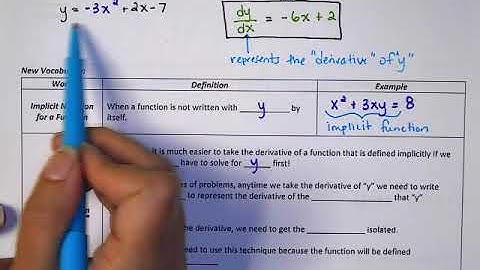 y = -3x² + 2x - 7
dy/dx = -6x + 2
represents the "derivative" of "y"
New Vocabulary
Definition
Example
Implicit
for a Function
When a function is not written with y by
itself.
x² + 3xy = 8
implicit function
it is much easier to take the derivative of a function that is defined implicitly if we
have to solve for y first!
of problems, anytime we take the derivative of "y" we need to write
to represent the derivative of the that "y"
the derivative, we need to get the isolated.
need to use this technique because the function will be defined